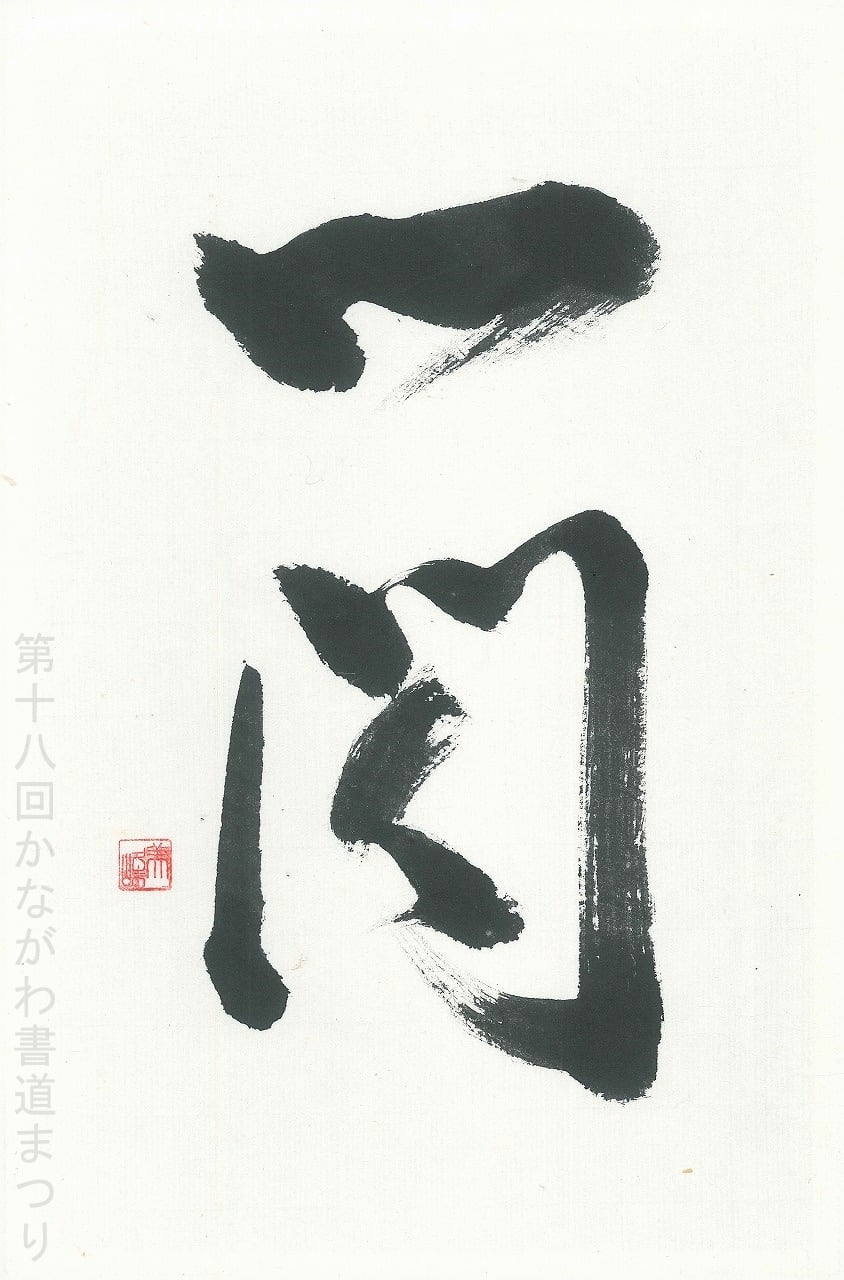 一
閃
第十八回かながわ書道まつり